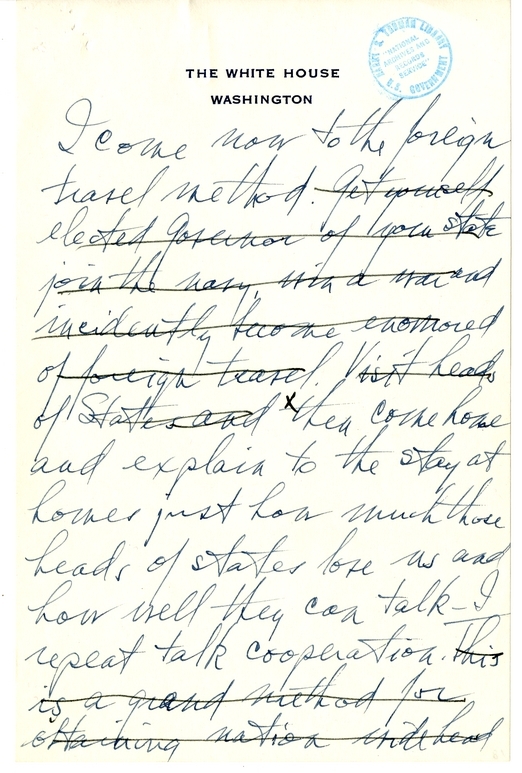 THE WHITE HOUSE
WASHINGTON
HARRY S. TRUMAN LIBRARY
"NATIONAL
ARCHIVES AND
RECORDS
SERVICE"
U.S. GOVERNMENT
I come now to the foreign
travel method. Get yourself
elected Governor of your state
join the navy, win a war and
incidently become enomored
of foreign travel. Visit heads
of States and x then come home
and explain to the stay at
homes just how much those
heads of states love us and
how well they can talk - I
repeat talk cooperation. This
is a grand method for
obtaining nation wide head